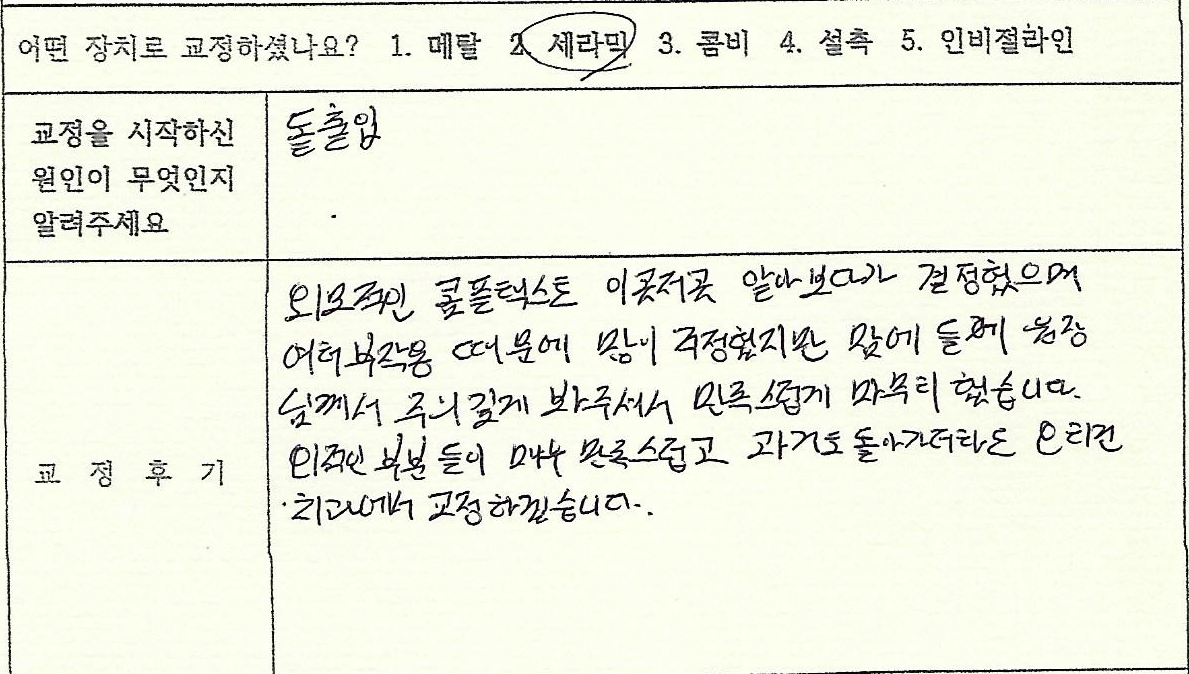 어떤 장치로 교정하셨나요? 1. 메탈 2. 세라믹 3. 콤비 4. 설측 5. 인비절라인
교정을 시작하신
원인이 무엇인지
알려주세요
돌출입
외모적인 콤플렉스로 이곳저곳 알아보다가 결정했으며
여러 부작용 때문에 많이 걱정했지만 맘에 들게 원장
님께서 주의 깊게 봐주셔서 만족스럽게 마무리 했습니다.
외적인 부분들이 매우 만족스럽고 과거로 돌아가더라도 오리건
치과에서 교정하겠습니다.
교 정 후 기